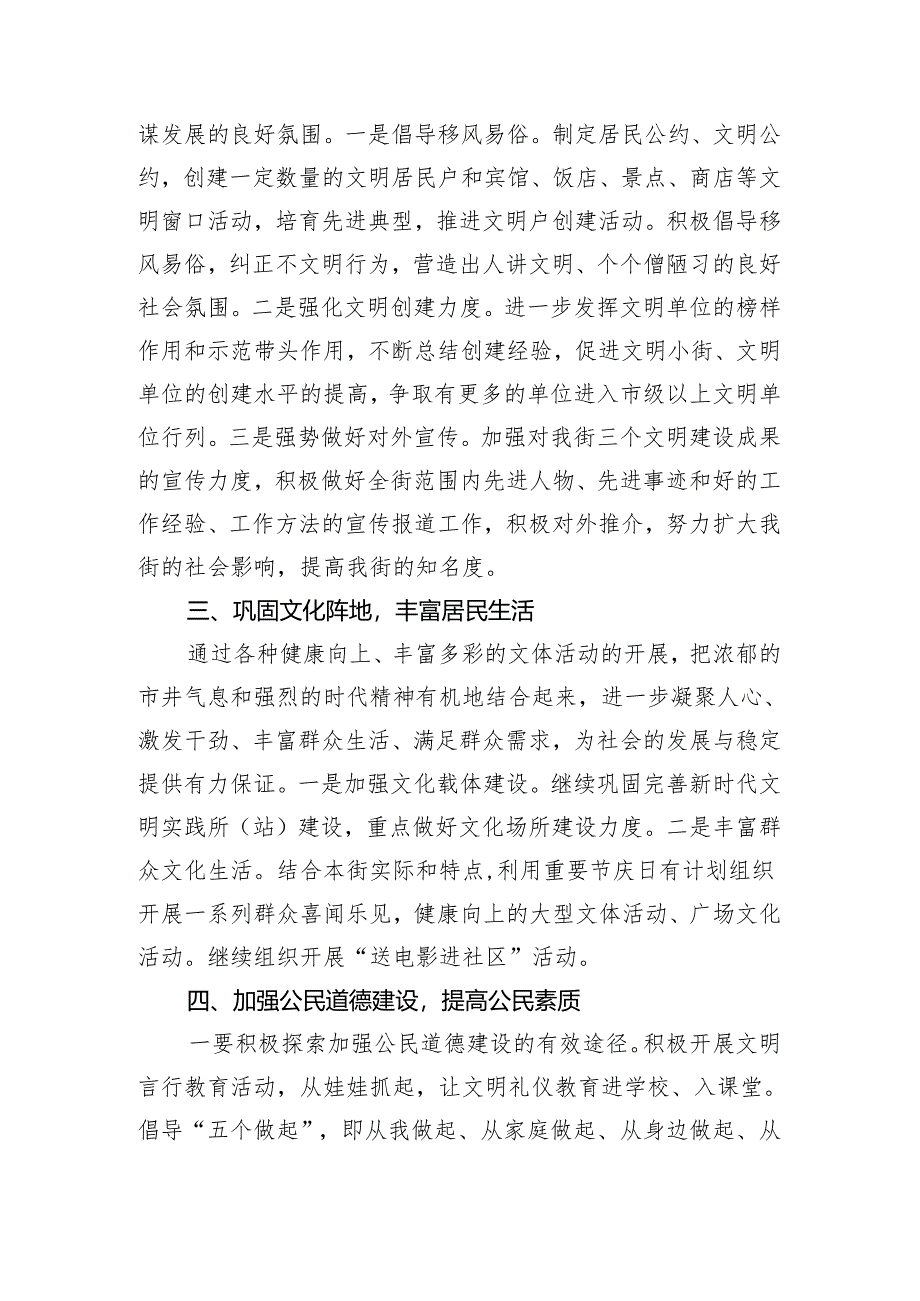 谋发展的良好氛围。一是倡导移风易俗。制定居民公约、文明公
约，创建一定数量的文明居民户和宾馆、饭店、景点、商店等文
明窗口活动，培育先进典型，推进文明户创建活动。积极倡导移
风易俗，纠正不文明行为，营造出人讲文明、个个僧陋习的良好
社会氛围。二是强化文明创建力度。进一步发挥文明单位的榜样
作用和示范带头作用，不断总结创建经验，促进文明小街、文明
单位的创建水平的提高，争取有更多的单位进入市级以上文明单
位行列。三是强势做好对外宣传。加强对我街三个文明建设成果
的宣传力度，积极做好全街范围内先进人物、先进事迹和好的工
作经验、工作方法的宣传报道工作，积极对外推介，努力扩大我
街的社会影响，提高我街的知名度。
三、巩固文化阵地，丰富居民生活
通过各种健康向上、丰富多彩的文体活动的开展，把浓郁的
市井气息和强烈的时代精神有机地结合起来，进一步凝聚人心、
激发干劲、丰富群众生活、满足群众需求，为社会的发展与稳定
提供有力保证。一是加强文化载体建设。继续巩固完善新时代文
明实践所（站）建设，重点做好文化场所建设力度。二是丰富群
众文化生活。结合本街实际和特点,利用重要节庆日有计划组织
开展一系列群众喜闻乐见，健康向上的大型文体活动、广场文化
活动。继续组织开展“送电影进社区”活动。
四、加强公民道德建设，提高公民素质
一要积极探索加强公民道德建设的有效途径。积极开展文明
言行教育活动，从娃娃抓起，让文明礼仪教育进学校、入课堂。
倡导“五个做起”，即从我做起、从家庭做起、从身边做起、从